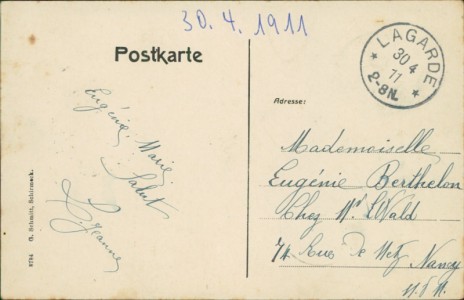 30.4.1911
Postkarte
* LAGARDE *
30 4
11
2-8N.
Adresse:
Eugénie, Marie
Salut
Jeanne
Mademoiselle
Eugénie Berthelon
Chez Mr Wald
74 Rue De Metz Nancy
M. M.
8794 G. Schmitt, Schirmeck.